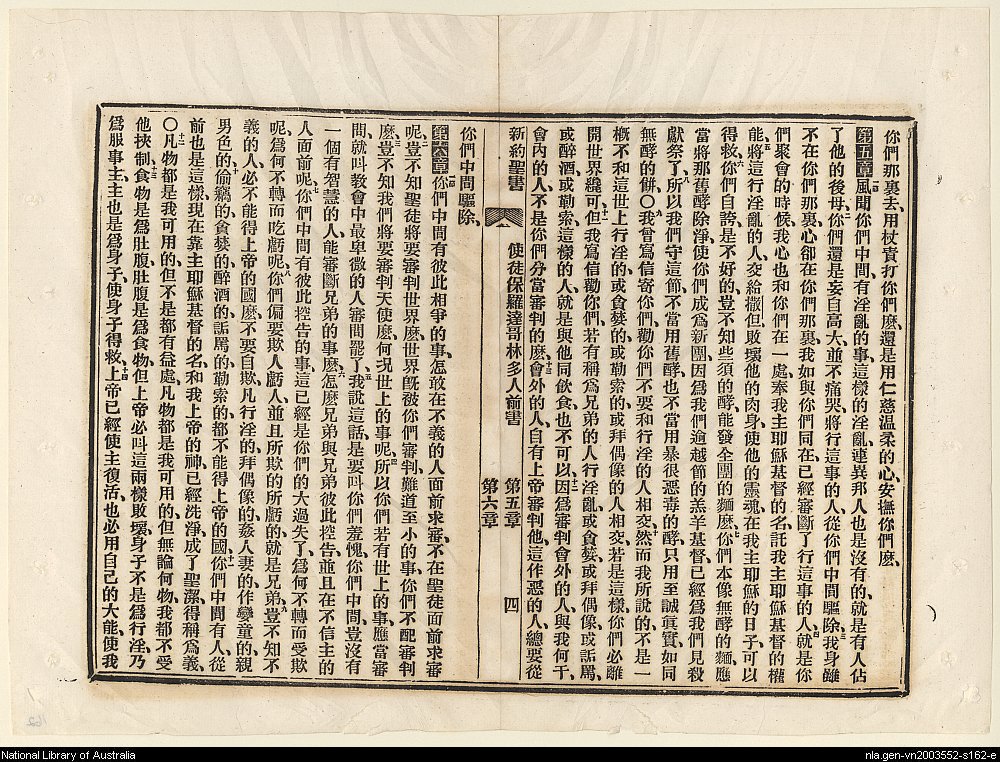 你們那裏去用杖責打你們麽還是用仁慈温柔的心安撫你們麽
第五章 一風聞你們中間有淫亂的事這樣的淫亂連異邦人也是没有的就是有人佔
了他的後母二你們還是妄自高大並不痛哭將行這事的人從你們中間驅除三我身雖
不在你們那裏心卻在你們那裏我如與你們同在已經審斷了行這事的人四就是你
們聚會的時候我心也和你們在一處奉我主耶穌基督的名託我主耶穌基督的權
能五將這行淫亂的人交給撒但敗壞他的肉身使他的靈魂在我主耶穌的日子可以
得救六你們自誇是不好的豈不知些須的酵能發全團的麵麽七你們本像無酵的麵應
當將那舊酵除淨使你們成爲新團因爲我們逾越節的羔羊基督已經爲我們見殺
獻祭了八所以我們守這節不當用舊酵也不當用暴很惡毒的酵只用至誠眞實如同
無酵的餅〇九我曾爲信寄你們勸你們不要和行淫的人相交十然而我所說的不是一
槪不和這世上行淫的或貪婪的或勒索的或拜偶像的人相交若是這樣你們必離
開世界纔可十一但我爲信勸你們若有稱爲兄弟的人行淫亂或貪婪或拜偶像或詬罵
或醉酒或勒索這樣的人就是與他同飲食也不可以十二因爲審判會外的人與我何干
會內的人不是你們分當審判的麽十三會外的人自有上帝審判他這作惡的人總要從
新約聖書 使徒保羅達哥林多人前書 第五章 第六章 四
你們中間驅除
第六章 一你們中間有彼此相爭的事怎敢在不義的人面前求審不在聖徒面前求審
呢二豈不知聖徒將要審判世界麽世界旣被你們審判難道至小的事你們不配審判
麽三豈不知我們將要審判天使麽何況世上的事呢四所以你們若有世上的事應當審
問就呌教會中最卑微的人審問罷了五我說這話是要呌你們羞愧你們中間豈沒有
一個有智慧的人能審斷兄弟的事麽六怎麽兄弟與兄弟彼此控告並且在不信主的
人面前呢七你們中間有彼此控告的事這已經是你們的大過失了爲何不轉而受欺
呢爲何不轉而吃虧呢八你們偏要欺人虧人並且所欺的所虧的就是兄弟九豈不知不
義的人必不能得上帝的國麽不要自欺凡行淫的拜偶像的姦人妻的作孌童的親
男色的十偷竊的貪婪的醉酒的詬罵的勒索的都不能得上帝的國十一你們中間有人從
前也是這樣現在靠主耶穌基督的名和我上帝的神已經洗淨成了聖潔得稱爲義
〇十二凡物都是我可用的但不是都有益處凡物都是我可用的但無論何物我都不受
他挾制十三食物是爲肚腹肚腹是爲食物但上帝必呌這兩樣敗壞身子不是爲行淫乃
爲服事主主也是爲身子使身子得救十四上帝已經使主復活也必用自己的大能使我
National Library of Australia
nla.gen-vn2003552-s162-e